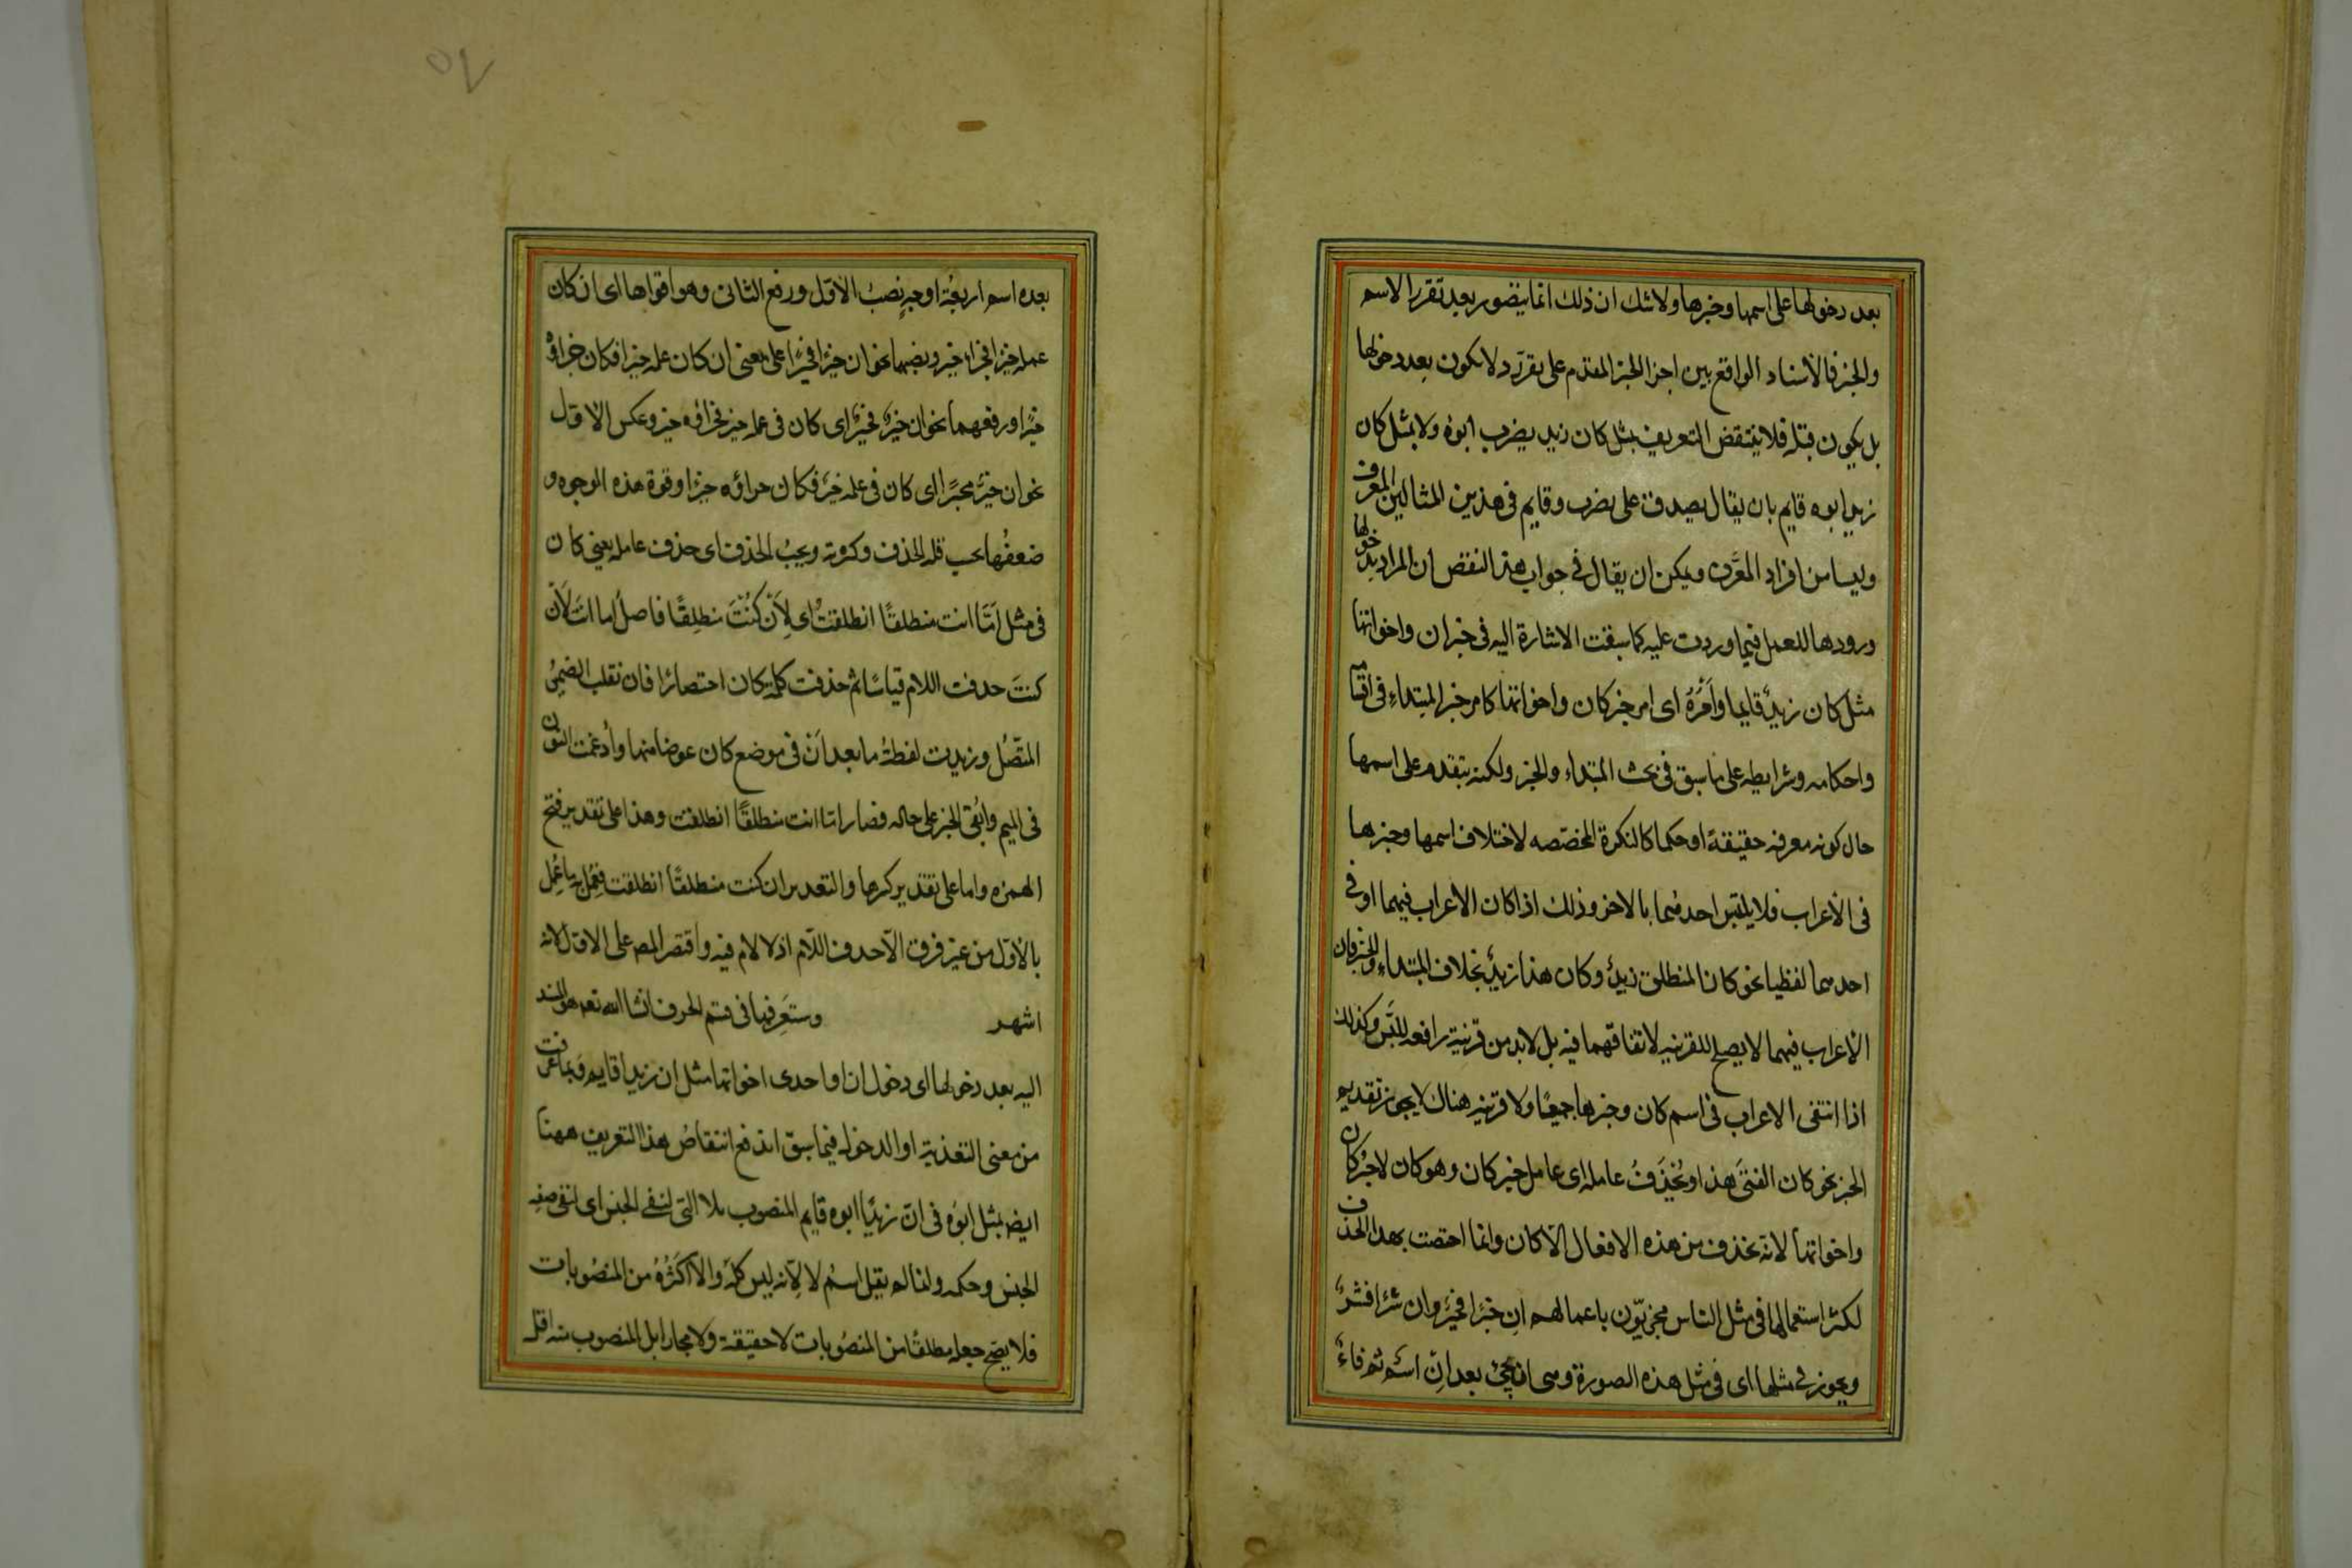 بعد دخولها على اسمها وخبرها ولا شك ان ذلك انما يتصور بعد تقرر الاسم
والخبر فالاسناد الواقع بين اجزا الخبر المقدم على تقرره لا يكون بعد دخولها
بل يكون قبله فلا ينتقض التعريف بمثل كان زيد يضرب ابوه ولا بمثل كان
زيد ابوه قايم بان يقال يصدق على يضرب وقايم فى هذين المثالين المعرف
وليسا من افراد المعرَّف ويمكن ان يقال فى جواب هذا النقض ان المراد بدخولها
ورودها للعمل فيما وردت عليه كما سبقت الاشارة اليه فى خبر ان واخواتها
مثل كان زيدٌ قايما وامْرُهُ اى امر خبر كان واخواتها كامر خبر المبتداءِ فى اقسامه
واحكامه وشرايطه على ما سبق فى بحث المبتداء والخبر ولكنه يتقدم على اسمها
حال كونه معرفه حقيقةً او حكما كالنكرة المخصّصه لاختلاف اسمها وخبرها
فى الاعراب فلا يلتبس احدهما بالاخر وذلك اذا كان الاعراب فيهما او فى
احدهما لفظيا نحو كان المنطلق زيدٌ وكان هذا زيدٌ بخلاف المبتداءِ والخبر فان
الاعراب فيهما لا يصلح للقرينه لاتفاقهما فيه بل لا بد من قرينة رافعه للبس وكذلك
اذا انتفى الاعراب فى اسم كان وخبرها جميعًا ولا قرينه هناك لا يجوز تقديم
الخبر نحو كان الفتى هذا ويُحْذَفُ عامله اى عامل خبر كان وهو كان لا خبر كان
واخواتها لانه يحذف من هذه الافعال الا كان وانما اختصت بهذا الحذف
لكثرة استعمالها فى مثل الناس مجزيّون باعمالهم ان خيرا فخيرٌ وان شرا فشرٌ
ويجوز فى مثلها اى فى مثل هذه الصورة وهى ان يجئ بعد انِ اسمٌ ثم فاءٌ
بعده اسم اربعة اوجهٍ نصبُ الاوّل ورفع الثانى وهو اقواها اى ان كان
عمله خيرا فجزاؤه خير ونصبهما نحو ان خيرًا فخيرًا على معنى ان كان عمله خيرا فكان جزاؤه
خيرًا ورفعهما نحو ان خيرٌ فخيرٌ اى كان فى عمله خير فجزاؤه خير وعكس الاوّل
نحو ان خيرٌ فخيرًا اى كان فى عمله خيرٌ فكان جزاؤه خيرًا وقوة هذه الوجوه و
ضعفُها بحسب قله الحذف وكثرته ويجبُ الحذف اى حذف عامله يعنى كان
فى مثل اَمَّا انت منطلقًا انطلقتُ اى لِاَنْ كُنْتَ منطلِقًا فاصل اما انتَ لاَن
كنتَ حذفت اللام قياسًا ثم حذفت كلمة كان اختصارًا فانقلب الضميرُ
المتّصُل وزيدت لفظةُ ما بعد اَنْ فى موضع كان عوضا منها واُدغمت النون
فى الميم واُبقى الخبر على حاله فصار امّا انت منطلقًا انطلقت وهذا على تقدير فتح
الهمزه واما على تقدير كسرها والتقدير ان كنت منطلقًا انطلقت فعُمِل به ما عُمِل
بالاوّل من غير فرق الاّ حذف اللاّم اذ لا لام فيه واقتصر المصـ على الاوّل لانه
اشهر وستَعرِفها فى قسم الحرف ان شا الله تعـ هو المسند
اليه بعد دخولها اى دخول ان او احدى اخواتها مثل ان زيدا قايم وبما عرفت
من معنى البعدية او الدخول فيما سبق اندفع انتقاضُ هذا التعريف ههنا
ايضـ بمثل ابوُه فى انّ زيدًا ابوه قايم المنصوب بلا التى لنفى الجنس اى لنفى صفه
الجنس وحكمه وانما لم يقل اسمُ لا لانه ليس كله ولا اَكثَرُهُ من المنصُوبات
فلا يصّح جعله مطلقًا من المنصُوبات لا حقيقة ولا مجازا بل المنصوب منه اقل